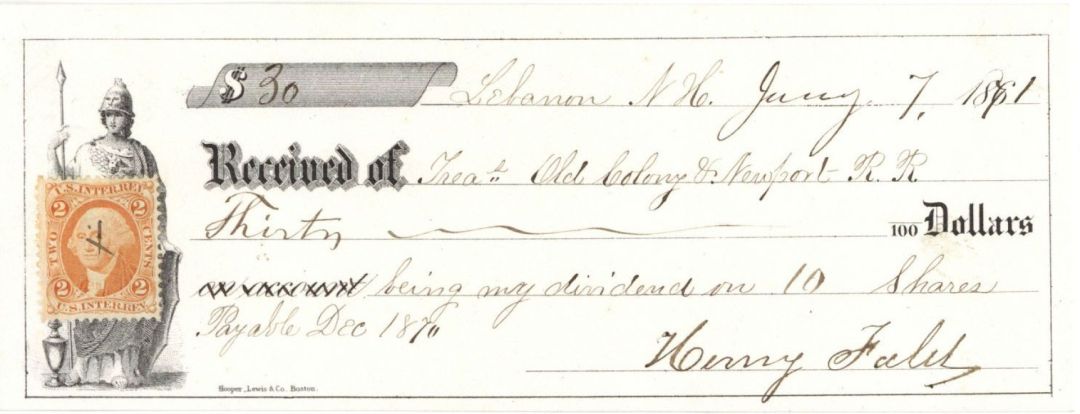 $ 30 Lebanon N H. Jany. 7, 1871
Received of Treasr. Old Colony & Newport R. R
Thirty 100 Dollars
on account being my dividend on 10 Shares
Payable Dec 1870
Henry
Hooper, Lewis & Co. Boston.
U.S. INTER. REV.
2 2
TWO CENTS
2 2
U.S. INTER. REV.